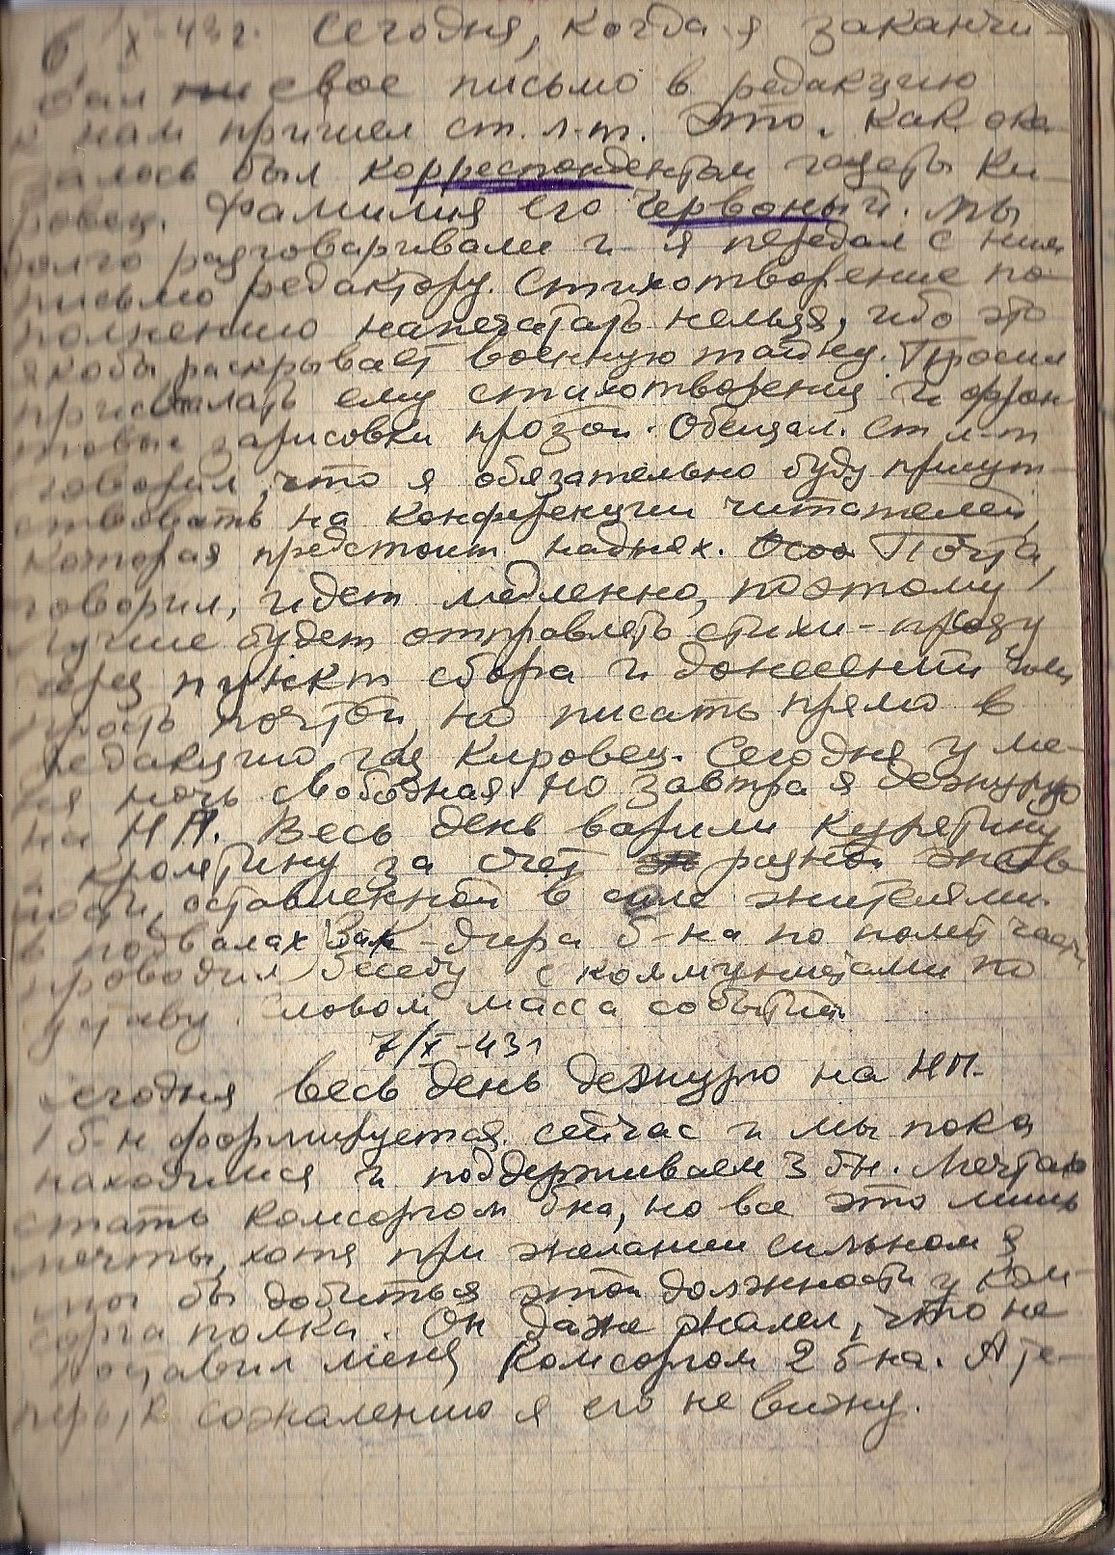 6/X-43г. Сегодня, когда я заканчи-
вал свое письмо в редакцию
к нам пришел ст. л-т. Это, как ока-
залось был корреспондентом газеты Ки-
ровец. Фамилия его Червоный. Мы
долго разговаривали и я передал с ним
письмо редактору. Стихотворение по-
полнению напечатать нельзя, ибо это
якобы раскрывает военную тайну. Просил
присылать ему стихотворения и фрон
товые зарисовки прозой. Обещал. Ст л-т
говорил, что я обязательно буду присут-
ствовать на конференции читателей,
которая предстоит наднях. Почта,
говорил, идет медленно, поэтому
лучше будет отправлять стихи-прозу
через пункт сбора и донесений или
просто почтой но писать прямо в
редакцию газ Кировец. Сегодня у ме-
ня ночь свободная. Но завтра я дежурю
на НП. Весь день варили курятину
и кролятину за счет разной жив
ности, оставленной в селе жителями
в подвалах Зам к-дира б-на по полит части
проводил беседу с коммунистами по
уставу. Словом масса событий.
7/X-43г
Сегодня весь день дежурю на НП.
1 б-н формируется сейчас и мы пока
находимся и поддерживаем 3 б-н. Мечтаю
стать комсоргом б-на, но все это лишь
мечты, хотя при желании сильном я
мог бы добиться этой должности у ком-
сорга полка. Он даже жалел, что не
поставил меня комсоргом 2 б-на. А те-
перь, к сожалению я его не вижу.